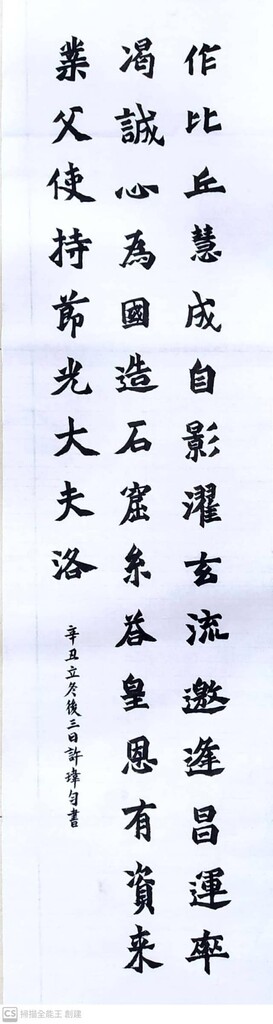 作比丘慧成自影濯玄流邀逢昌運率
渴誠心為國造石窟系荅皇恩有資来
業父使持節光大夫洛
辛丑立冬後三日許瑋勻書
CS 掃描全能王 創建